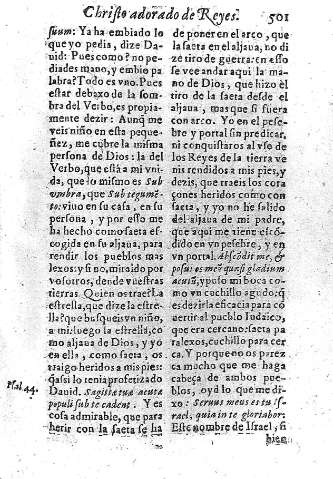 Christo adorado de Reyes. 501
suum: Ya ha embiado lo
que yo pedia, dize Da
uid: Pues como? no pe
diades mano, y embio pa
labra? Todo es vno. Pues
estar debaxo de la som
bra del Verbo, es propia
mente dezir: Aunq̃ me
veis niño en esta peque
ñez, me cubre la misma
persona de Dios: la del
Verbo, que està a mi vni
da, que lo mismo es Sub
vmbra, que Sub tegumẽ
to: viuo en su casa, en su
persona, y por esso me
ha hecho como saeta es
cogida en su aljaua, para
rendir los pueblos mas
lexos: y si no, miraldo por
vosotros, desde vuestras
tierras. Quien os traer? La
estrella, que dize la estre
lla? que busqueis vn niño,
a mi: luego la estrella, co
mo aljaua de Dios, y yo
en ella, como saeta, os
traigo heridos a mis pies:
q̃ assi lo tenia profetizado
Psal. 44. Dauid. Sagittæ tuæ acutæ
populi sub te cadent. Y es
cosa admirable, que para
herir con la saeta se ha
de poner en el arco, que
la saeta en el aljaua, no di
ze tiro de guerra: en esso
se vee andar aqui la ma
no de Dios, que hizo el
tiro de la saeta desde el
aljaua, mas que si fuera
con arco. Yo en el pese
bre, y portal sin predicar,
ni conquistaros al vso de
los Reyes de la tierra ve
nis rendidos a mis pies, y
dezis, que traeis los cora
çones heridos como con
saeta, y yo no he salido
del aljaua de mi padre,
que aqui me tiene escõ
dido en vn pesebre, y en
vn portal. Abscõdit me, &
posuit os meũ quasi gladium
acutũ, y puso mi boca co
mo vn cuchillo agudo: q̃
es dezir la eficacia para cõ
uertir al pueblo Iudaico,
que era cercano: saeta pa
ra lexos, cuchillo para cer
ca. Y porque no os parez
ca mucho que me haga
cabeça de ambos pue
blos, oyd lo que me di
xo: Seruus meus es tu Is-
rael, quia in te gloriabor:
Este nombre de Israel, si
bien